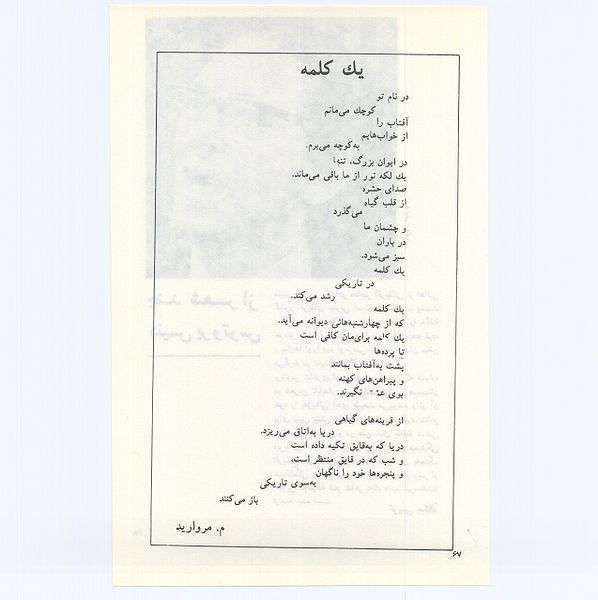 یك کلمه
در نام تو
کوچك می‌مانم
آفتاب را
از خواب‌هایم
به‌کوچه می‌برم.
در ایوان بزرگ، تنها
یك لکه نور از ما باقی می‌ماند.
صدای حشره
از قلب گیاه
می‌گذرد
و چشمان ما
در باران
سبز می‌شود.
یك کلمه
در تاریکی
رشد می‌کند.
یك کلمه
که از چهارشنبه‌هائی دیوانه می‌آید.
یك کلمه برای‌مان کافی است
تا پرده‌ها
پشت به‌آفتاب بمانند
و پیراهن‌های کهنه
بوی نگیرند.
از قرینه‌های گیاهی
دریا به‌اتاق می‌ریزد.
دریا که به‌قایق تکیه داده است
و شب که در قایق منتظر است،
و پنجره‌ها خود را ناگهان
به‌سوی تاریکی
باز می‌کنند
م. مروارید
۶۷